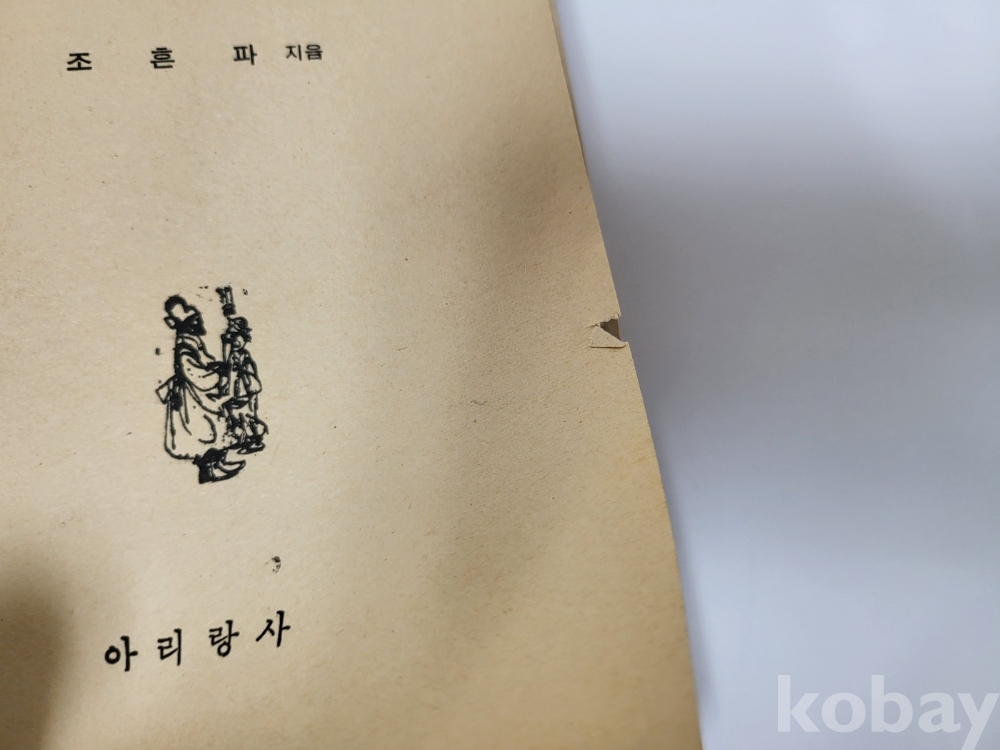 조 흔 파 지음
아 리 랑 사
kobay